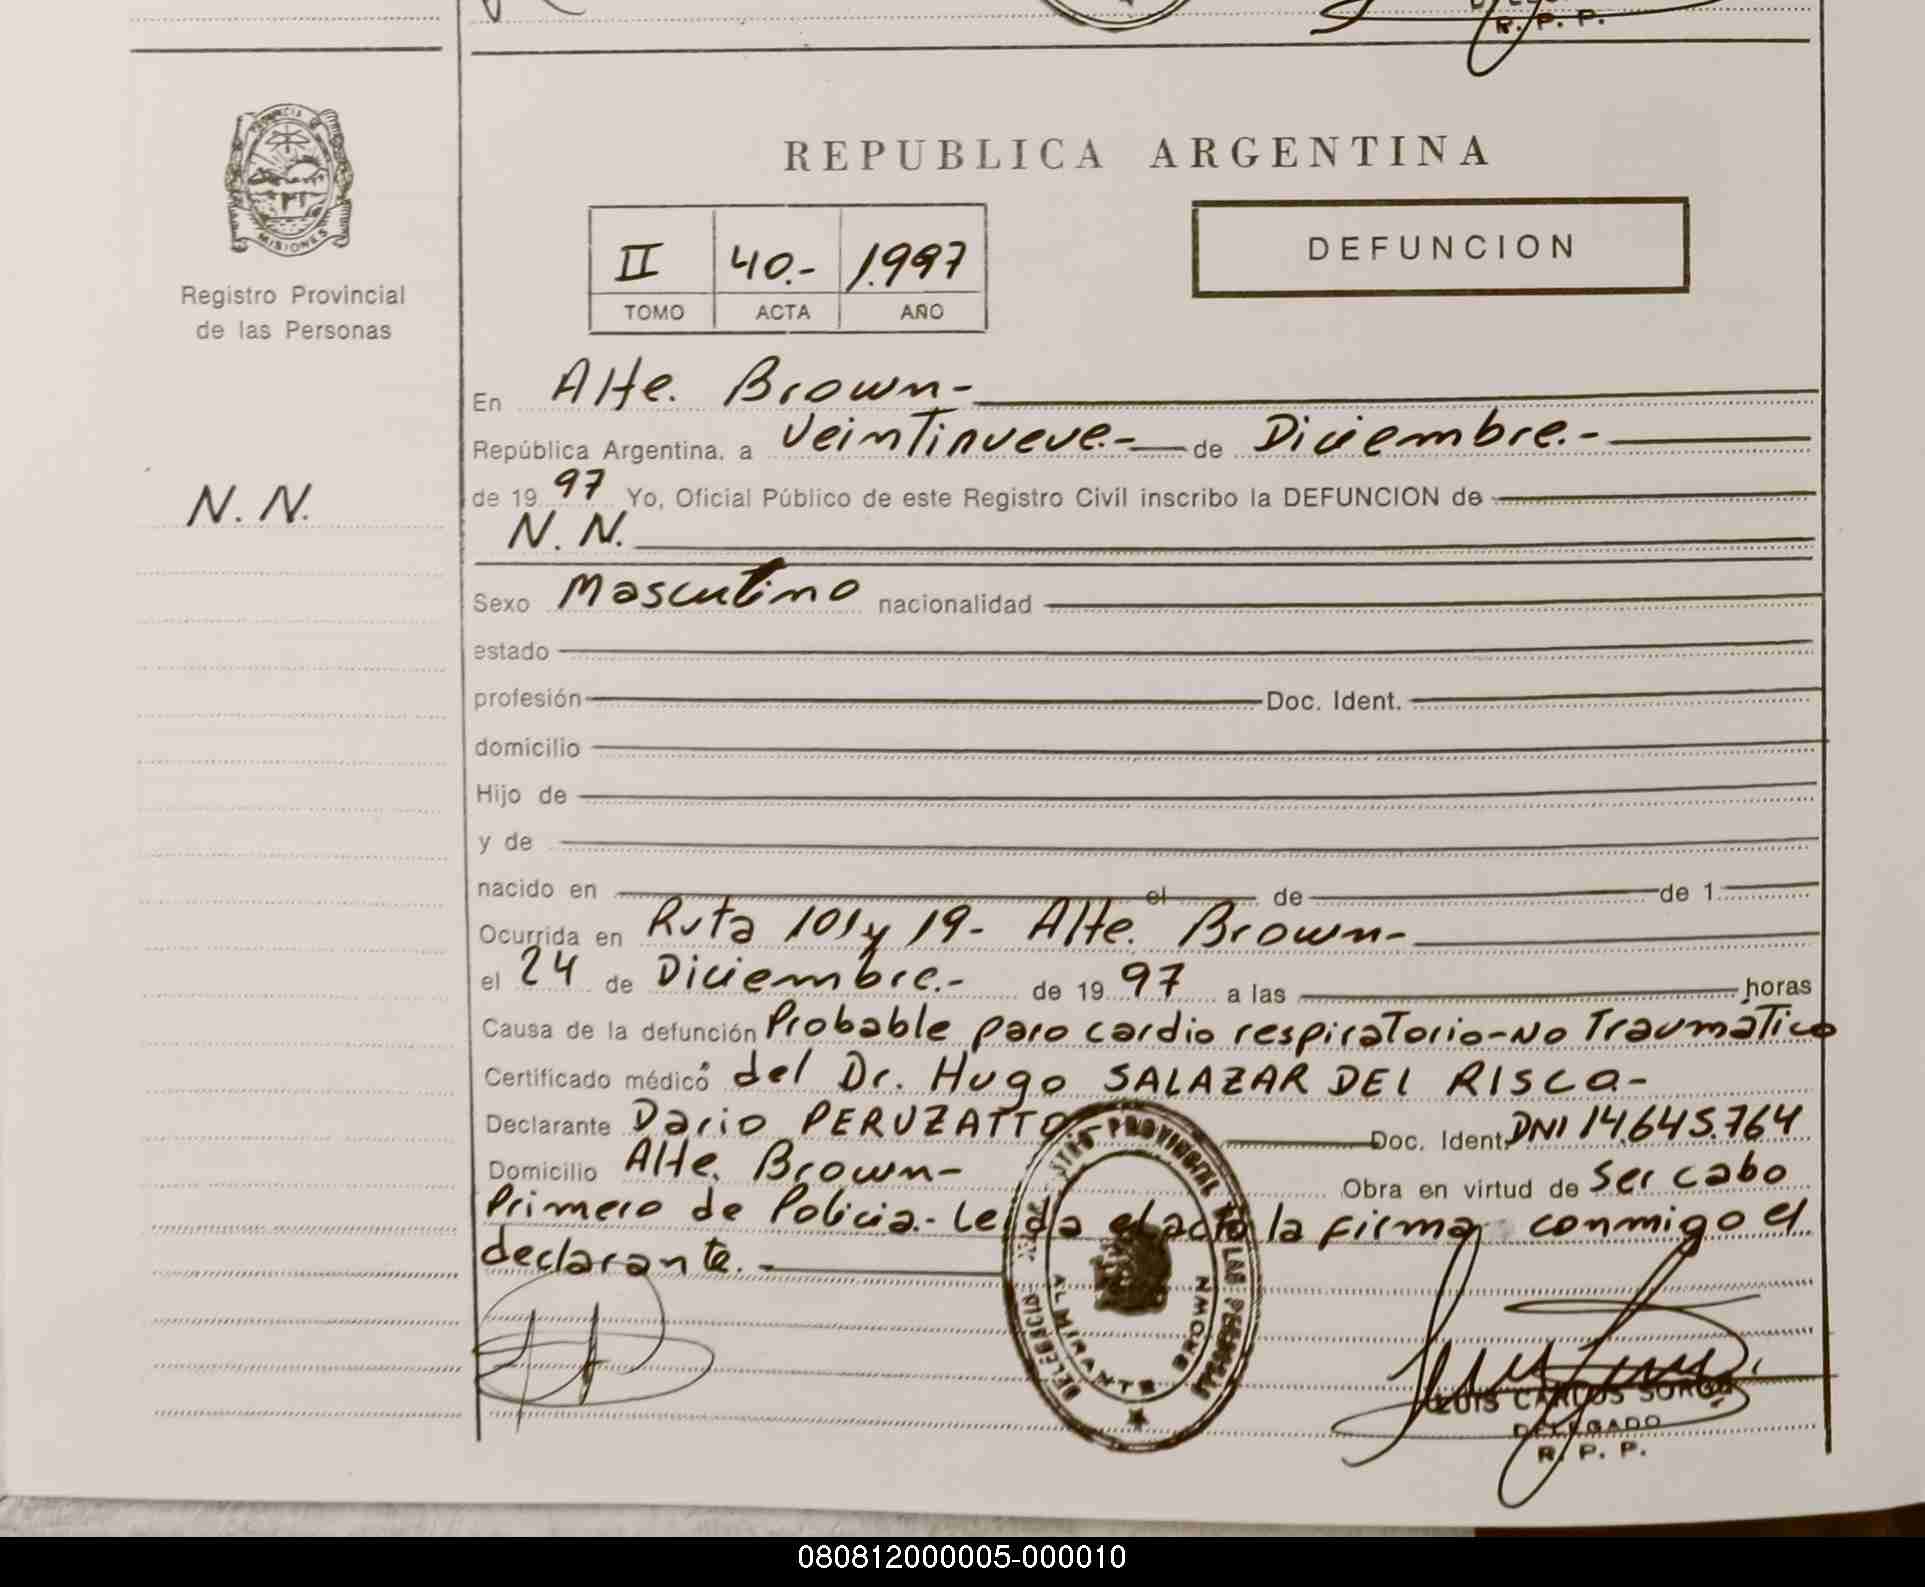 R. P. P.
PROVINCIA DE
MISIONES
Registro Provincial
de las Personas
REPUBLICA ARGENTINA
II 40.- 1.997
TOMO ACTA AÑO
DEFUNCION
En Alte. Brown-
República Argentina, a Veintinueve.- de Diciembre.-
N. N.
de 19 97 Yo, Oficial Público de este Registro Civil inscribo la DEFUNCION de
N. N.
Sexo Masculino nacionalidad
estado
profesión Doc. Ident.
domicilio
Hijo de
y de
nacido en el de de 1
Ocurrida en Ruta 101 y 19- Alte. Brown-
el 24 de Diciembre.- de 19 97 a las horas
Causa de la defunción Probable paro cardio respiratorio-No Traumatico
Certificado médico del Dr. Hugo SALAZAR DEL RISCO-
Declarante Dario PERUZATTO Doc. Ident. DNI 14.645.764
Domicilio Alte. Brown- Obra en virtud de ser cabo
Primero de Policia.- Leida el acta la firma conmigo el
declarante.-
ALMIRANTE BROWN
LUIS CARLOS
DELEGADO
R. P. P.
080812000005-000010